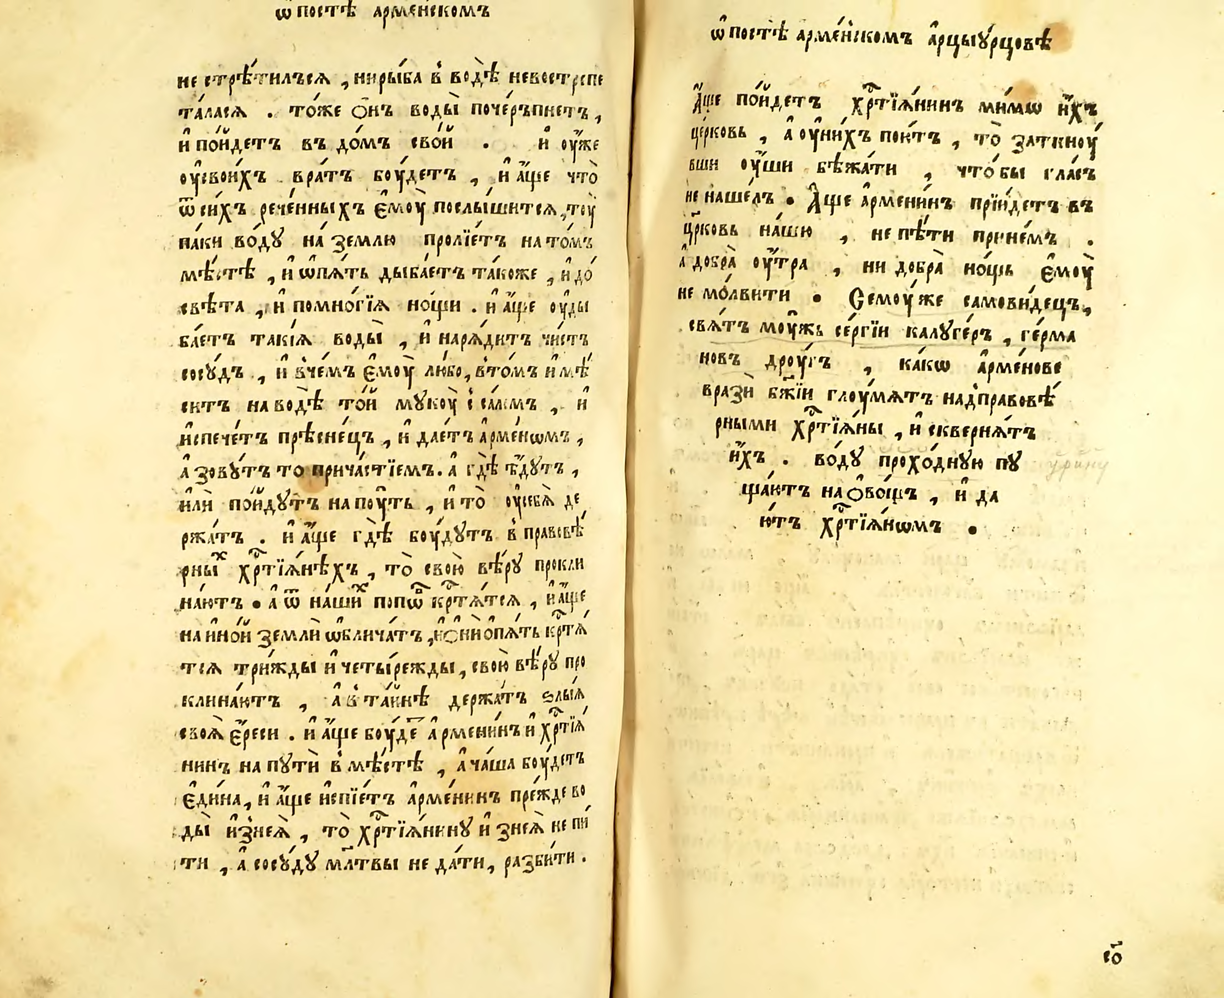 ѿ постѣ арме́нскомъ
не стрѣ́тилъся , ни рыба в̾ водѣ̀ невострепе
та́лася . то́же ѻ҆́нъ воды̀ поче́рьпнетъ ,
и҆ по́йдетъ въ до́мъ сво́й . и҆ ᲂу҆́же
ᲂу҆своихъ вра́тъ бꙋ́детъ , и҆ а҆́ще что̀
ѿ си́хъ рече́нныхъ є҆мꙋ̀ послы́шится , тꙋ̀
па́ки во́дꙋ на́ землю пролїе́тъ на то́мъ
мѣ́стѣ , и҆ ѡ҆пѧ́ть дыба́етъ та́коже , и҆ до́
свѣ́та , и҆ помно́гїѧ но́щи . и҆ а҆́ще ᲂу҆ды
ба́етъ такі́ѧ воды̀ , и҆ нарѧ́дитъ чи́стъ
сосꙋ́дъ , и҆ в̾че́мъ є҆мꙋ̀ лю́бо, в̾то́мъ и҆ мѣ́
ситъ на водѣ̀ то́й мꙋкꙋ̀ с̾ са́ломъ , и҆
и҆спече́тъ прѣсне́цъ , и҆ дае́тъ а҆рме́нѡмъ ,
а҆ зовꙋ́тъ то̀ прича́стїемъ . а҆ гдѣ̀ ѣ҆́дꙋтъ ,
и҆лѝ по́йдꙋтъ на пꙋ́ть , и҆ то̀ ᲂу҆себѧ̀ де
ржа́тъ . и҆ а҆́ще гдѣ̀ бꙋ́дꙋтъ в̾ правовѣ́
рныⷯ хрⷭ҇тїѧ́нѣхъ , то̀ свою̀ вѣ́рꙋ прокли
на́ютъ . а҆ ѿ на́шиⷯ попѡ́въ крⷭ҇тѧ́тсѧ , и҆ а҆́ще
на и҆но́й землѝ ѡ҆блича́тъ , и҆ ѻ҆нѝ ѻ҆пѧ́ть крⷭ҇тѧ́
тсѧ три́жды и҆ четы́режды , свою̀ вѣ́рꙋ про
клина́ютъ , а҆ в̾ та́йнѣ держа́тъ ѕлы́ѧ
своѧ̀ є҆́реси . и҆ а҆́ще бꙋ́деⷮ а҆рмени́нъ и҆ хрⷭ҇тїѧ́
нинъ на пꙋтѝ в̾ мѣ́стѣ , а҆ ча́ша бꙋ́детъ
є҆ди́на, и҆ а҆́ще и҆спїе́тъ а҆рмени́нъ пре́жде во
ды̀ и҆з̾ неѧ̀ , то̀ хрⷭ҇тїѧ́нинꙋ и҆з̾ неѧ̀ не пи́
ти , а҆ сосꙋ́дꙋ мл҃твы не да́ти , разби́ти .
ѿ постѣ а҆рме́нскомъ а҆рцыꙋ́рцовѣ
А҆́ще по́йдетъ хрⷭ҇тїѧ́нинъ ми́мѡ и҆́хъ
це́рковь , а҆ ᲂу҆ни́хъ пою́тъ , то̀ заткнꙋ́
вши ᲂу҆́ши бѣжа́ти , что́бы гла́съ
не наше́лъ . А҆́ще а҆рмени́нъ прїи́детъ въ
цр҃ковь на́шю , не пѣ́ти при не́мъ .
а҆ добра̀ ᲂу҆́тра , ни добра̀ но́щь є҆мꙋ̀
не мо́лвити . Семꙋ́же самови́децъ ,
свѧ́тъ мꙋ́жъ се́ргїи калꙋге́ръ , ге́рма
новъ дрꙋ́гъ , ка́кѡ а҆рме́нове
вразѝ бж҃їи глꙋмѧ́тъ надправовѣ́
рными хрⷭ҇тїѧ́ны , и҆ сквернѧ́тъ
и҆́хъ . во́дꙋ прохо́днꙋю пꙋ
ща́ютъ на ѻ҆во́щъ , и҆ да
ю́тъ хрⷭ҇тїѧ́нѡмъ .
со҃